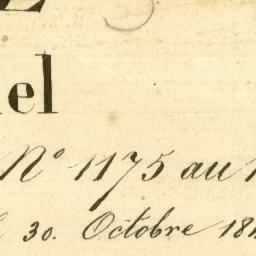 el
N° 1175 au 1
30. Octobre 18